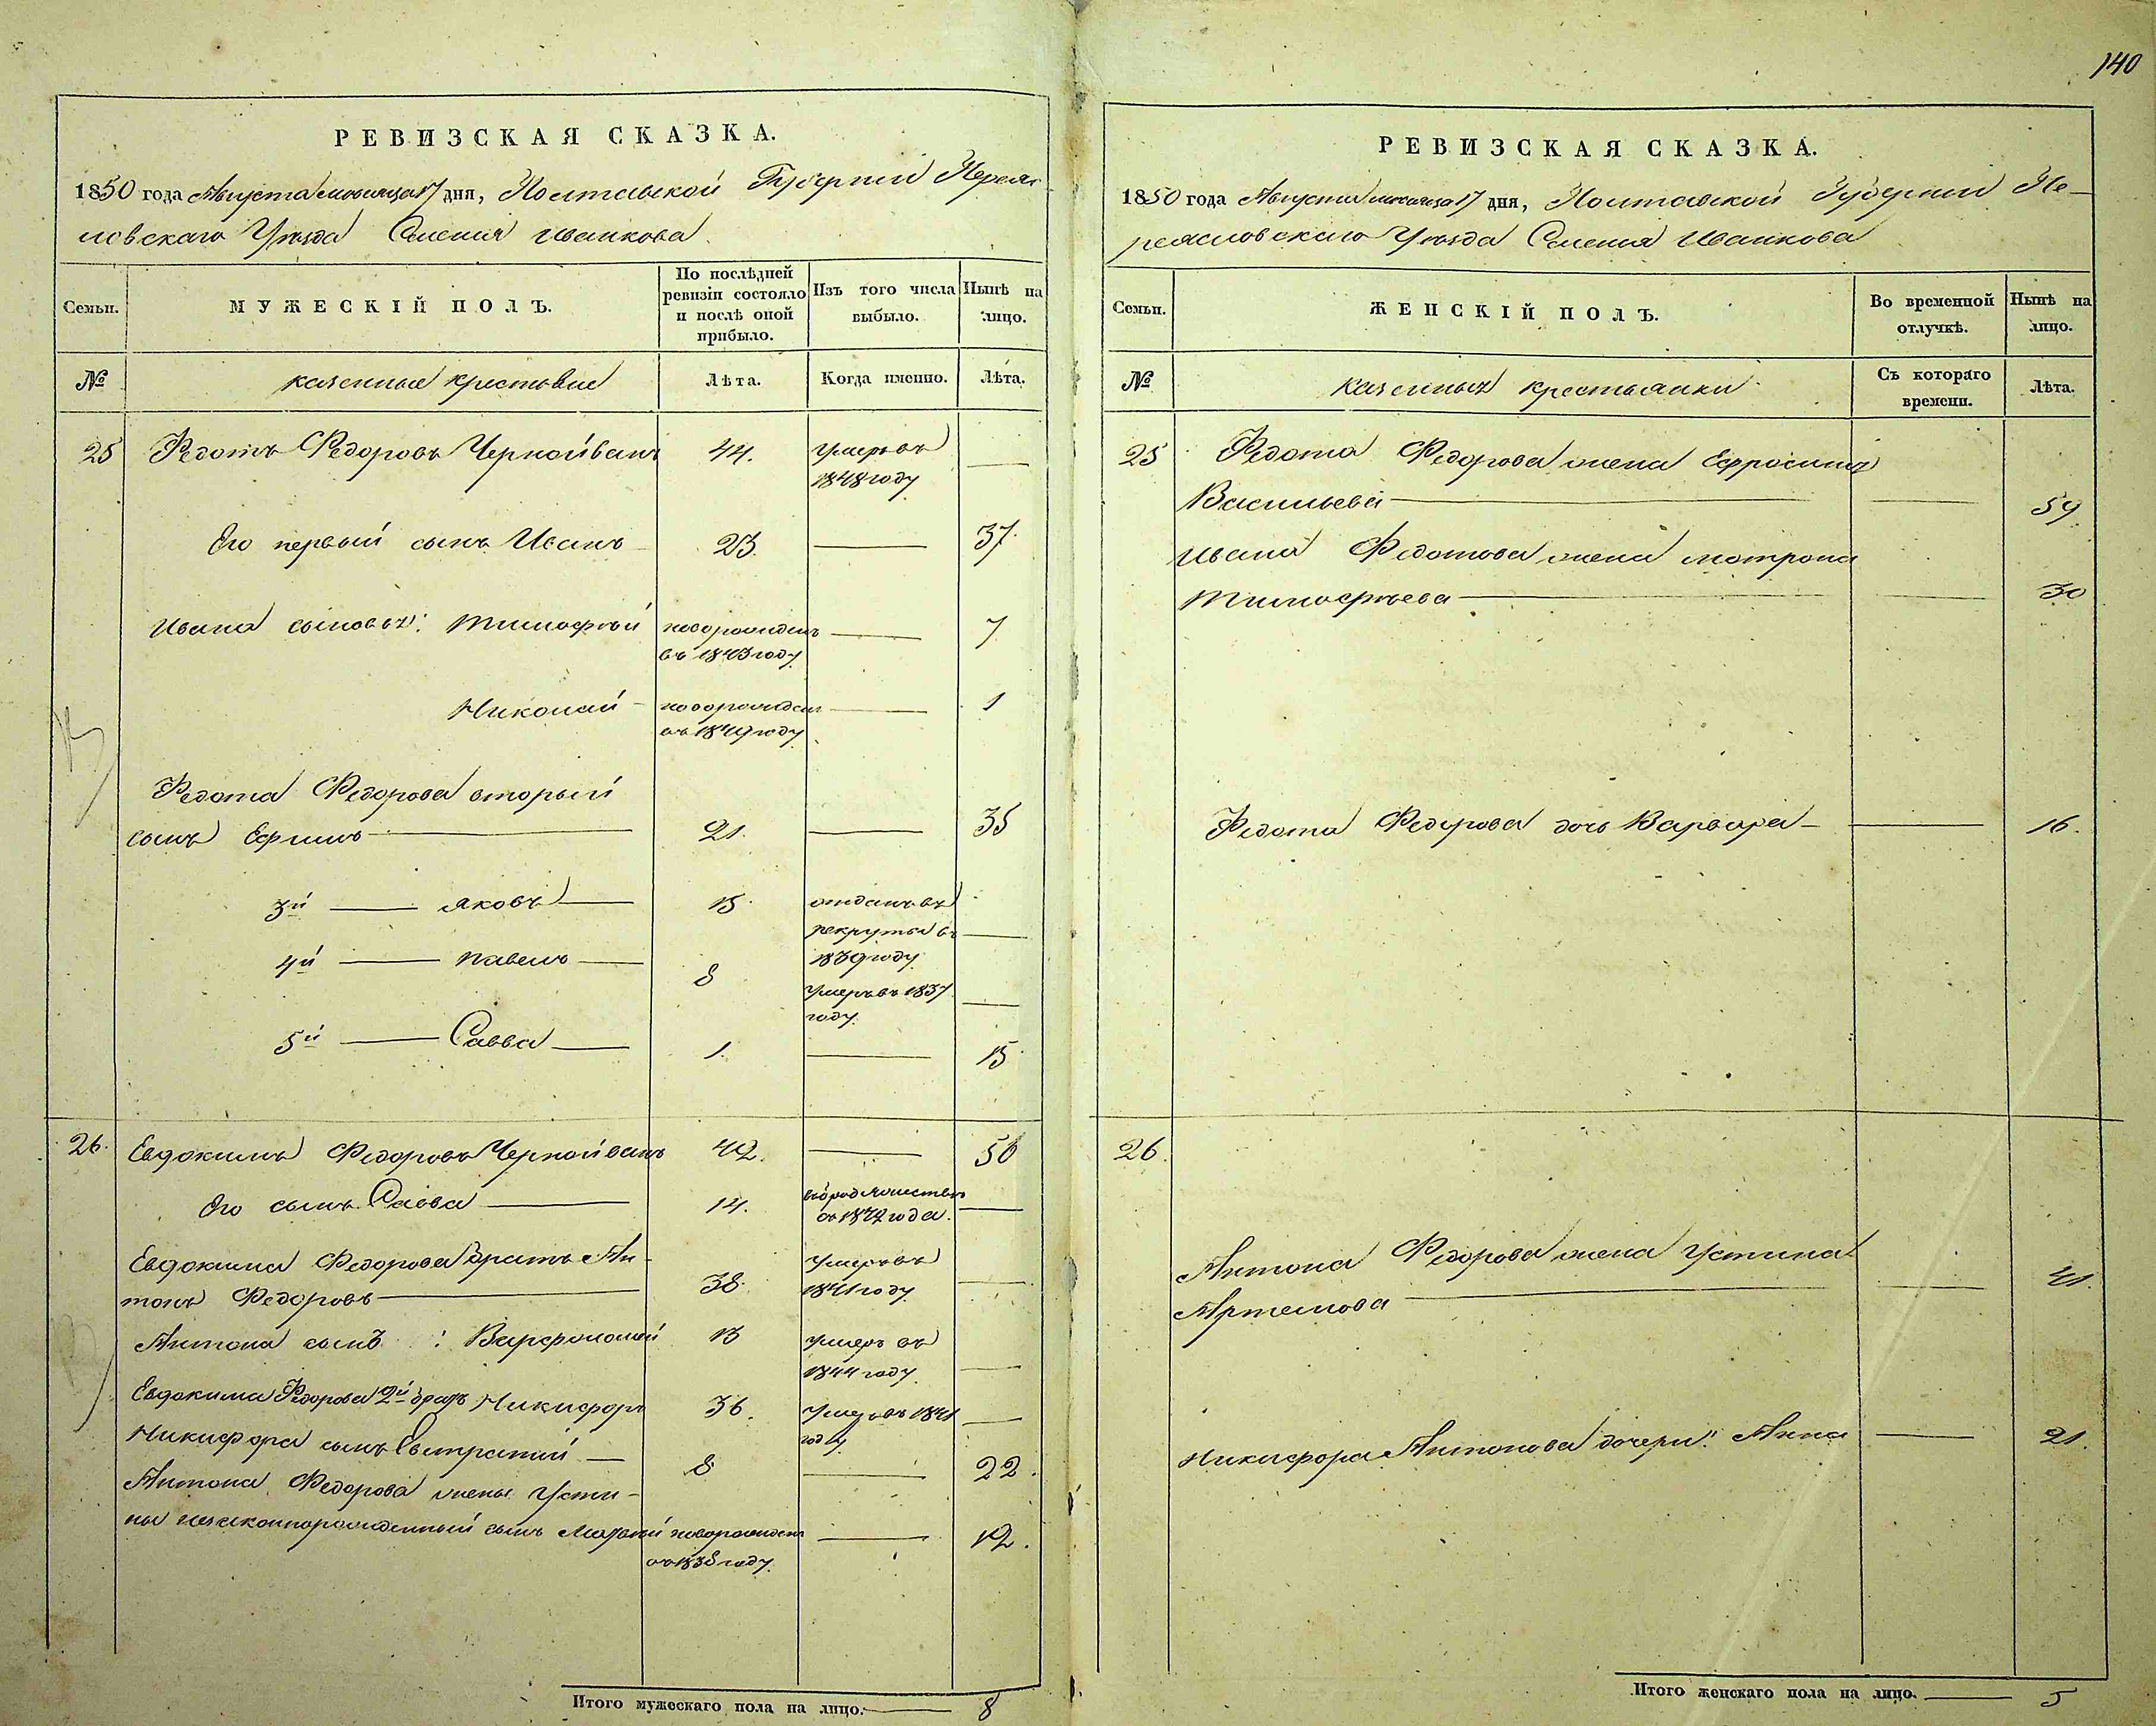 140
РЕВИЗСКАЯ СКАЗКА.
1850 года Августа месяца 17 дня, Полтавской Губернии Перея-
словскаго Уѣзда Селения Иванкова
Семьи.
МУЖЕСКІЙ ПОЛЪ.
По послѣдней ревизіи состояло и послѣ оной прибыло.
Изъ того числа выбыло.
Нынѣ на лицо.
№
казенные крестьяне
Лѣта.
Когда именно.
Лѣта.
25 Федотъ Федоровъ Чернойванъ 44. умеръ въ —
1848 году
Его первый сынъ Иванъ 23. — 37.
Ивана сыновья: Тимофѣй новорожденъ — 7
въ 1843 году
Николай — новорожден — 1
въ 1849 году
Федота Федорова вторый
сынъ Ефимъ — 21. — 35
3й — Яковъ — 15. отданъ въ
рекруты въ —
1839 году
4й — Павелъ — 8
умеръ въ 1837 —
году.
5й — Савва — 1. — 15
26. Евдокимъ Федоровъ Чернойванъ 42. — 56
Его сынъ Савва — 14. въ бродяжествѣ —
съ 1842 года.
Евдокима Федорова братъ Ан-
тонъ Федоровъ — 38. умеръ въ —
1841 году
Антона сынъ: Варфоломей 13 умеръ въ
1844 году —
Евдокима Федорова 2й братъ Никифоръ 36. умеръ въ 1841 —
году
Никифора сынъ Евстратий — 8 — 22.
Антона Федорова жены Усти-
ны незаконнорожденный сынъ новорожден — 12.
въ 1838 году.
Итого мужескаго пола на лицо. — 8
РЕВИЗСКАЯ СКАЗКА.
1850 года Августа месяца 17 дня, Полтавской Губернии Пе-
реясловскаго Уѣзда Селения Иванкова
Семьи.
ЖЕНСКІЙ ПОЛЪ.
Во временной отлучкѣ.
Нынѣ на лицо.
№
казенныя крестьянки
Съ котораго времени.
Лѣта.
25 Федота Федорова жена Ефросинья
Васильева — — 59.
Ивана Федотова жена Мотрона
Тимофѣева — — 30
Федота Федорова дочь Варвара — — 16.
26.
Антона Федорова жена Устина
Артемова — — 41.
Никифора Антонова дочери: Анна — 21.
Итого женскаго пола на лицо. — 5